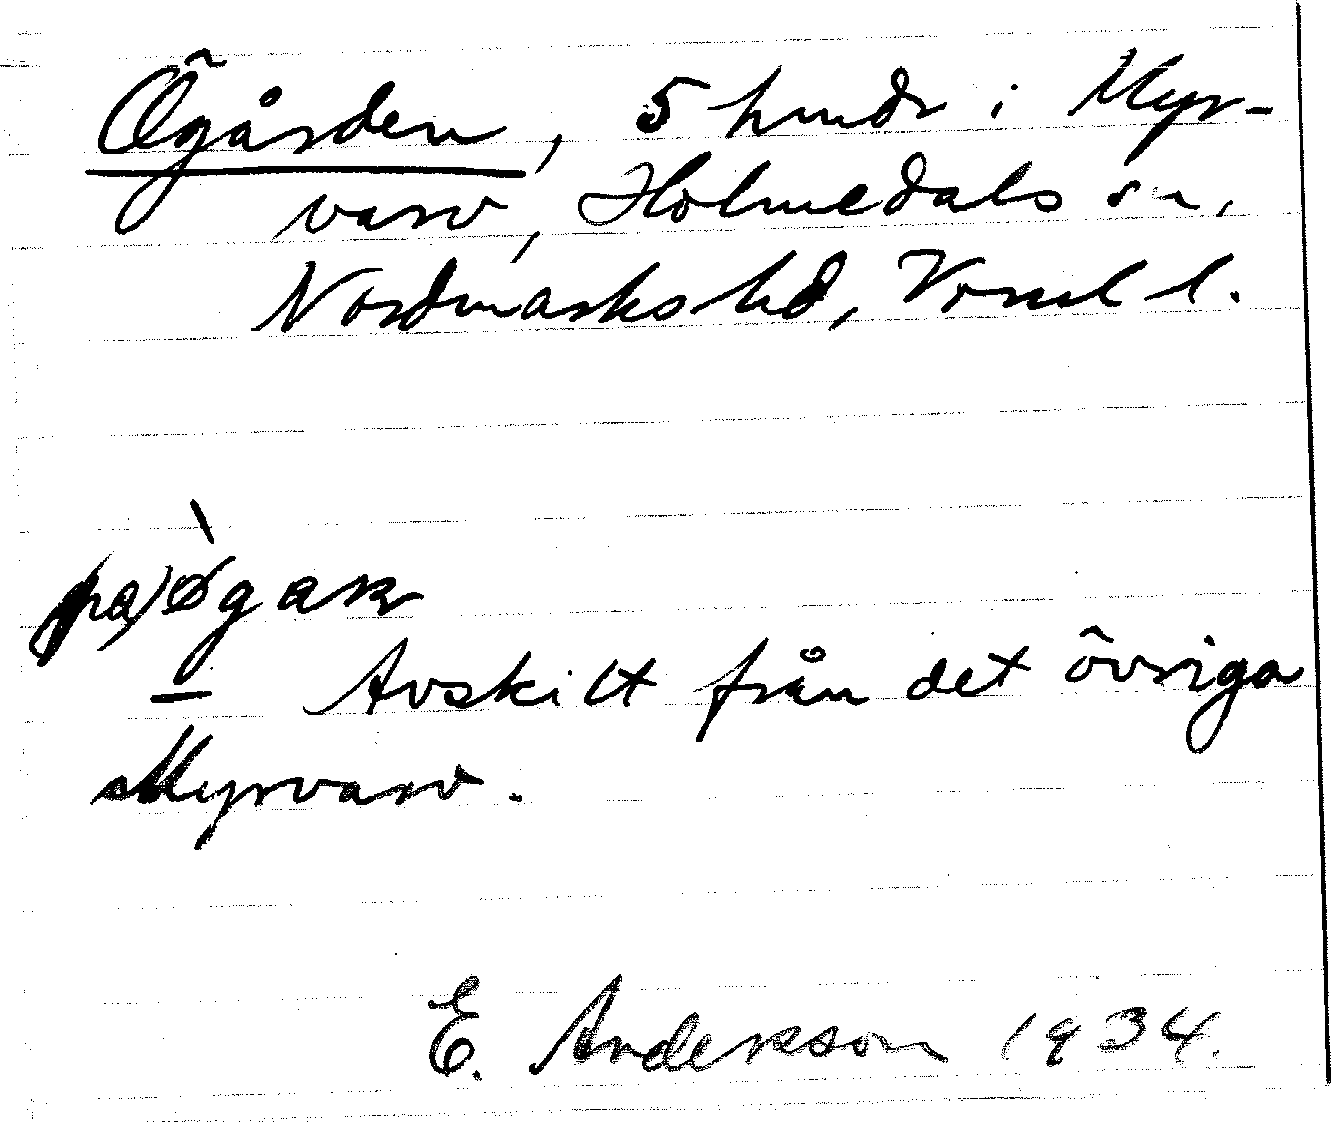 Ögården, 5 hmdr i Myr-
varv, Holmedals sn,
Nordmarks hd, Vrml l.
på) øgaṛ
— Avskilt från det övriga
Myrvarv.
E. Anderson 1934.